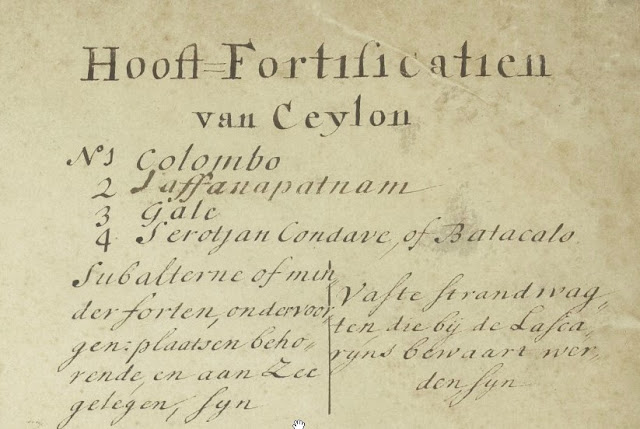 Hooft=Fortificatien
van Ceylon
No 1 Colombo
2 Jaffanapatnam
3 Gale
4 Serotjan Condave, of Batacalo
Subalterne of min,
der forten, ondervoor,
gen: plaatsen beho,
rende, en aan Zee
gelegen, syn
Vaste strandwag,
ten die bij de Lasca,
ryns bewaart wer,
den syn